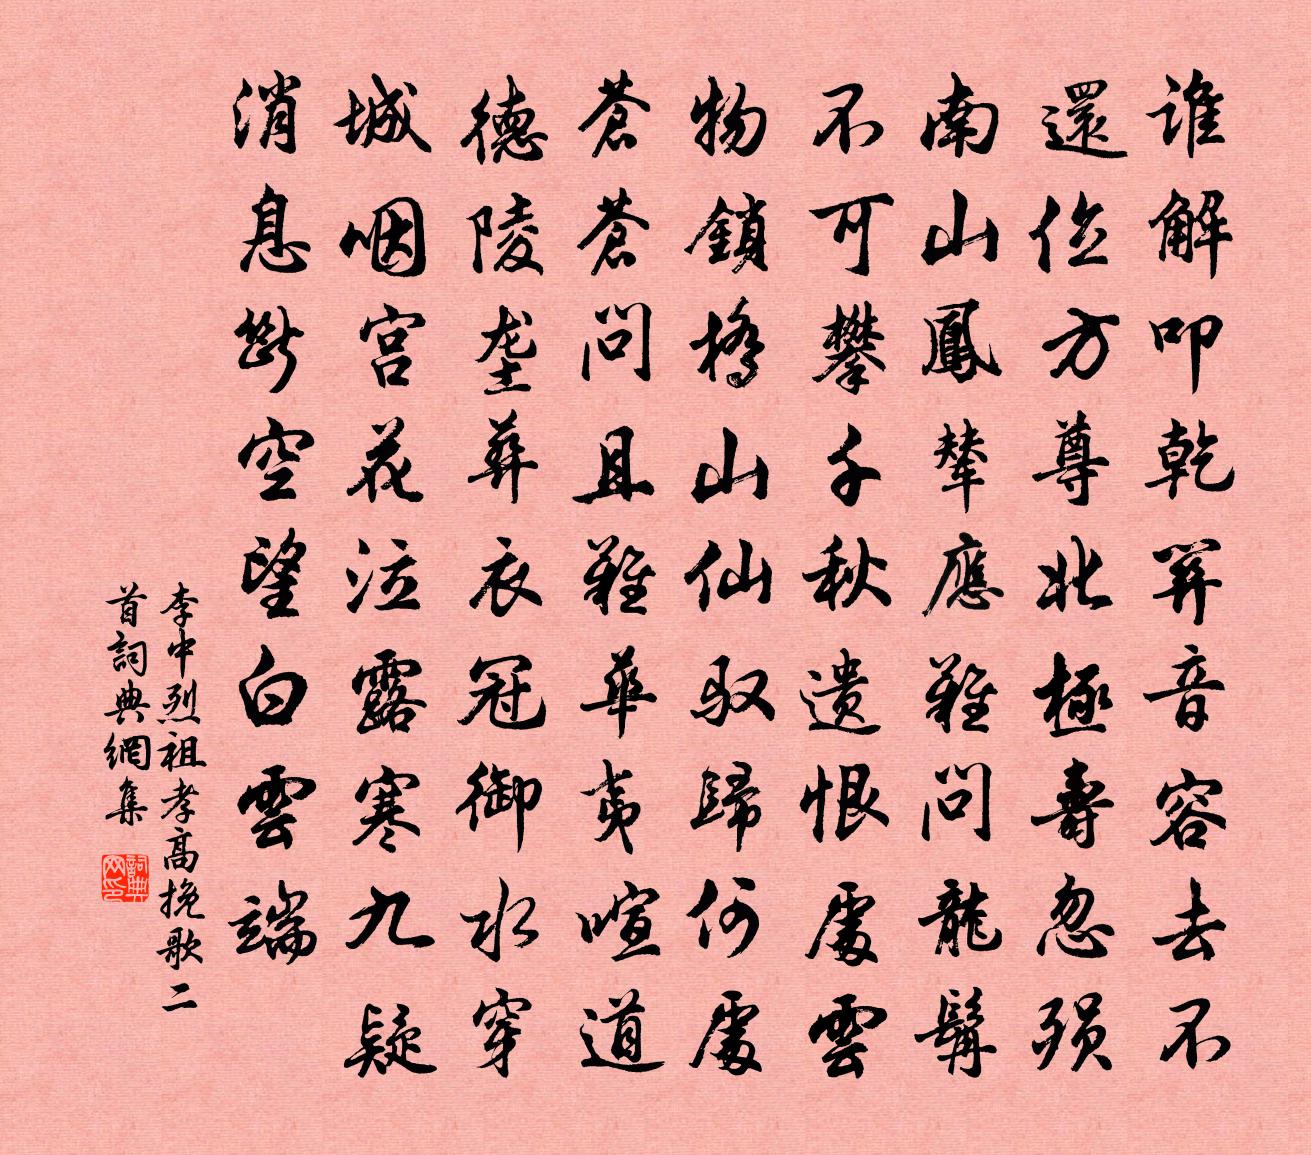 谁解叩乾関音容去不
還位方尊北極壽忽殒
南山鳳輦應難問龍髯
不可攀千秋遗恨處雲
物鎖橋山仙驭歸何處
蒼蒼問且難華夷喧道
德陵垄葬衣冠御水穿
城咽宫花泣露寒九疑
消息斷空望白雲端
李中烈祖孝高挽歌二
首詞典網集
詞典网印